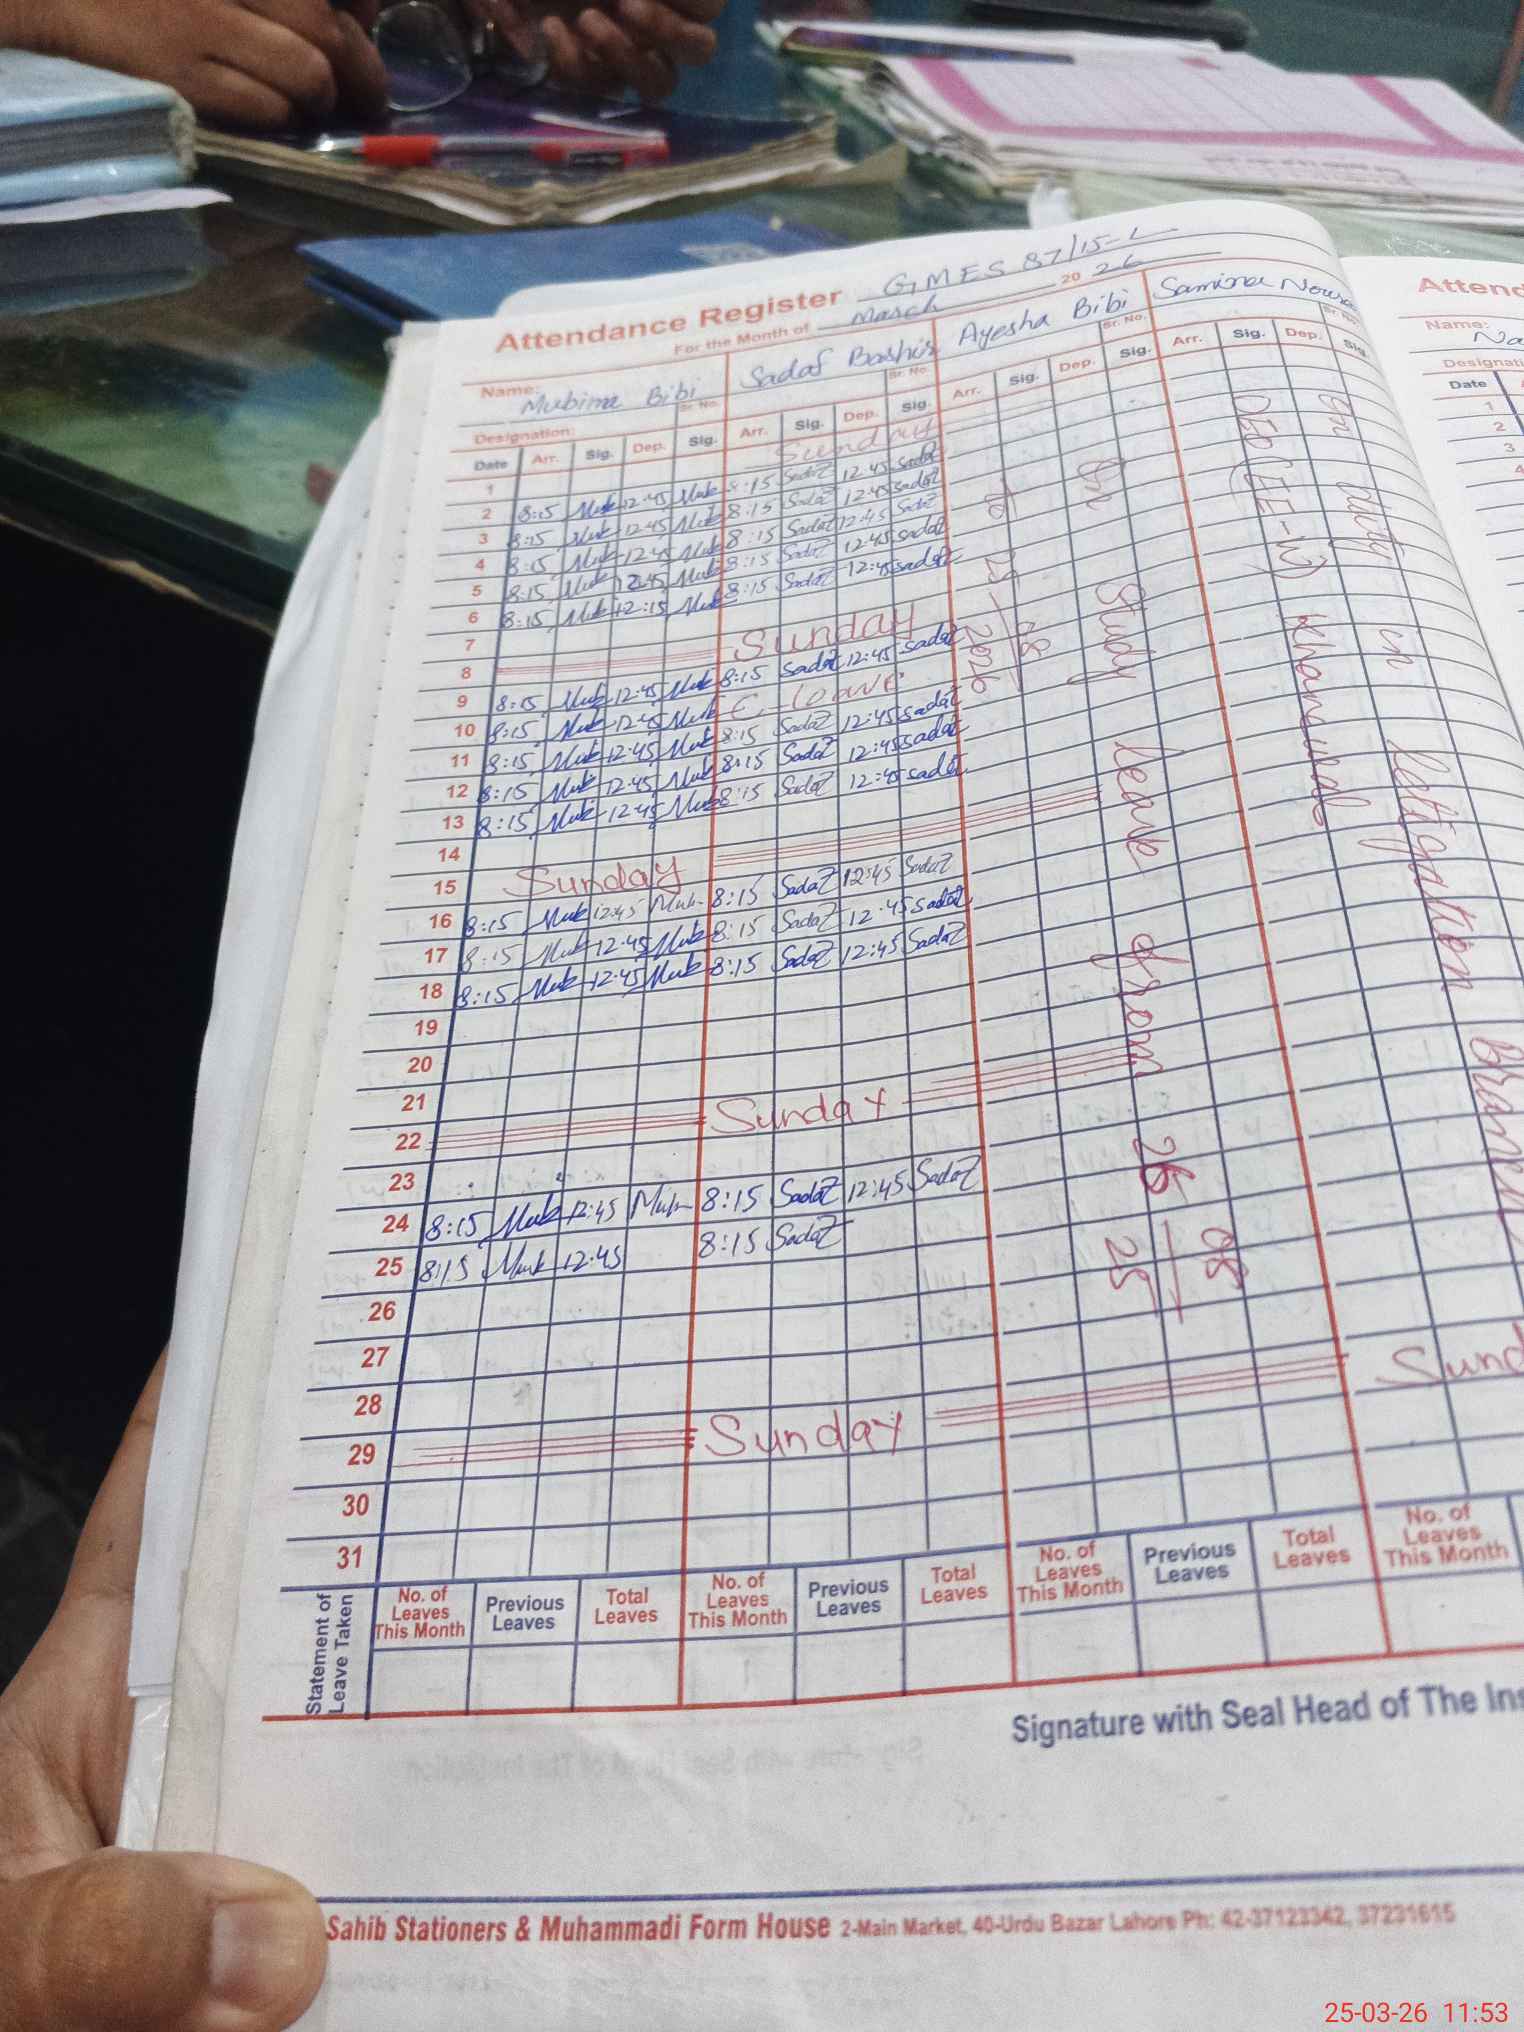 Attendance Register GMES 87/15-L
For the Month of March 2026
Name: Mubima Bibi
Sadaf Bashir
Ayesha Bibi
Samina
Designation: Sr. No. Sr. No. Sr. No. Sr. No.
Date Arr. Sig. Dep. Sig. Arr. Sig. Dep. Sig. Arr. Sig. Dep. Sig. Arr. Sig. Dep. Sig.
1 Sunday
2 8:15 Mub 12:45 Mub 8:15 Sadaf 12:45 Sadaf
3 8:15 Mub 12:45 Mub 8:15 Sadaf 12:45 Sadaf
4 8:15 Mub 12:45 Mub 8:15 Sadaf 12:45 Sadaf
5 8:15 Mub 12:45 Mub 8:15 Sadaf 12:45 Sadaf
6 8:15 Mub 12:15 Mub 8:15 Sadaf 12:45 Sadaf
7
8 Sunday
9 8:15 Mub 12:45 Mub 8:15 Sadaf 12:45 Sadaf
10 8:15 Mub 12:45 Mub C. leave
11 8:15 Mub 12:45 Mub 8:15 Sadaf 12:45 Sadaf
12 8:15 Mub 12:45 Mub 8:15 Sadaf 12:45 Sadaf
13 8:15 Mub 12:45 Mub 8:15 Sadaf 12:45 Sadaf
14
15 Sunday
16 8:15 Mub 12:45 Mub 8:15 Sadaf 12:45 Sadaf
17 8:15 Mub 12:45 Mub 8:15 Sadaf 12:45 Sadaf
18 8:15 Mub 12:45 Mub 8:15 Sadaf 12:45 Sadaf
19
20
21
22 Sunday
23
24 8:15 Mub 12:45 Mub 8:15 Sadaf 12:45 Sadaf
25 8:15 Mub 12:45 8:15 Sadaf
26
27
28
29 Sunday Sund
30
31
On Study leave from 26/08 25
To 25/08 2026
On duty in Letigation Branch
DEO (EE-W) Khanewal
Statement of Leave Taken
No. of Leaves This Month Previous Leaves Total Leaves No. of Leaves This Month Previous Leaves Total Leaves No. of Leaves This Month Previous Leaves Total Leaves No. of Leaves This Month
Signature with Seal Head of The Ins
Sahib Stationers & Muhammadi Form House 2-Main Market, 40-Urdu Bazar Lahore Ph: 42-37123342, 37231615
Attend
Name: Na
Designati
Date
1
2
3
4
25-03-26 11:53